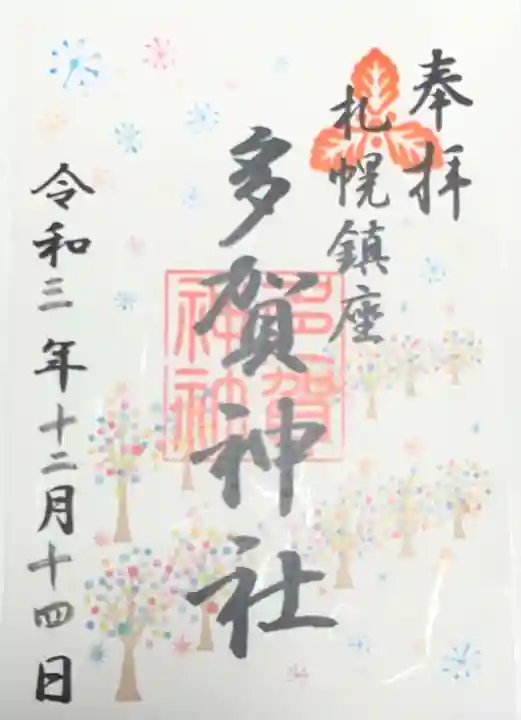 奉拝
札幌鎮座
多賀神社
多賀
神社
令和三年十二月十四日